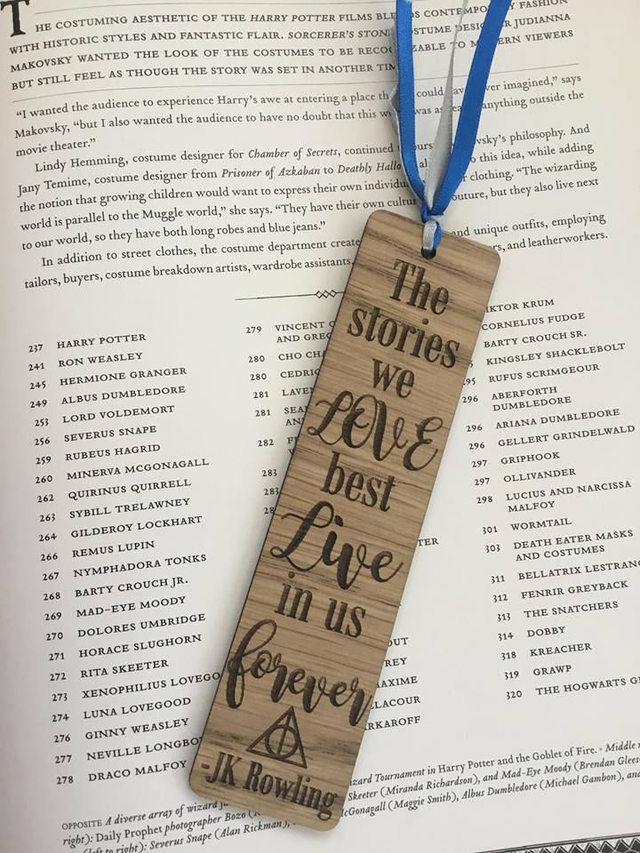 THE COSTUMING AESTHETIC OF THE HARRY POTTER FILMS CONTEMPO FASHION
WITH HISTORIC STYLES AND FANTASTIC FLAIR. SORCERER'S STON JUDIANNA
MAKOVSKY WANTED THE LOOK OF THE COSTUMES TO BE VIEWERS
BUT STILL FEEL AS THOUGH THE STORY WAS SET IN ANOTHER
"I wanted the audience to experience Harry's awe at entering a place imagined," says
Makovsky, "but I also wanted the audience to have no doubt that this was as anything outside the
movie theater."
Lindy Hemming, costume designer for Chamber of Secrets, continued vsky's philosophy. And
Jany Temime, costume designer from Prisoner of Azkaban to Deathly Hallo this idea, while adding
the notion that growing children would want to express their own clothing. "The wizarding
world is parallel to the Muggle world," she says. "They have their own but they also live next
to our world, so they have both long robes and blue jeans."
In addition to street clothes, the costume department create and unique outfits, employing
tailors, buyers, costume breakdown artists, wardrobe assistants, rs, and leatherworkers.
237 HARRY POTTER
241 RON WEASLEY
245 HERMIONE GRANGER
249 ALBUS DUMBLEDORE
253 LORD VOLDEMORT
256 SEVERUS SNAPE
259 RUBEUS HAGRID
260 MINERVA MCGONAGALL
262 QUIRINUS QUIRRELL
263 SYBILL TRELAWNEY
264 GILDEROY LOCKHART
266 REMUS LUPIN
267 NYMPHADORA TONKS
268 BARTY CROUCH JR.
269 MAD-EYE MOODY
270 DOLORES UMBRIDGE
271 HORACE SLUGHORN
272 RITA SKEETER
273 XENOPHILIUS LOVEGO
274 LUNA LOVEGOOD
276 GINNY WEASLEY
277 NEVILLE LONGBO
278 DRACO MALFOY
279 VINCENT
AND GREG
280 CHO CHA
280 CEDRIC
281 LAVE
281 SEA
AN
282
283
283
28
TER
OUT
REY
AXIME
LACOUR
RKAROFF
IKTOR KRUM
CORNELIUS FUDGE
BARTY CROUCH SR.
KINGSLEY SHACKLEBOLT
95 RUFUS SCRIMGEOUR
296 ABERFORTH
DUMBLEDORE
296 ARIANA DUMBLEDORE
296 GELLERT GRINDELWALD
297 GRIPHOOK
297 OLLIVANDER
298 LUCIUS AND NARCISSA
MALFOY
301 WORMTAIL
303 DEATH EATER MASKS
AND COSTUMES
311 BELLATRIX LESTRAN
312 FENRIR GREYBACK
313 THE SNATCHERS
314 DOBBY
318 KREACHER
319 GRAWP
320 THE HOGWARTS G
The
stories
we
LOVE
best
Live
in us
forever
-JK Rowling
OPPOSITE A diverse array of wizard izard Tournament in Harry Potter and the Goblet of Fire. • Middle
right): Daily Prophet photographer Bozo Skeeter (Miranda Richardson), and Mad-Eye Moody (Brendan Glees
(left to right): Severus Snape (Alan Rickman), McGonagall (Maggie Smith), Albus Dumbledore (Michael Gambon), and